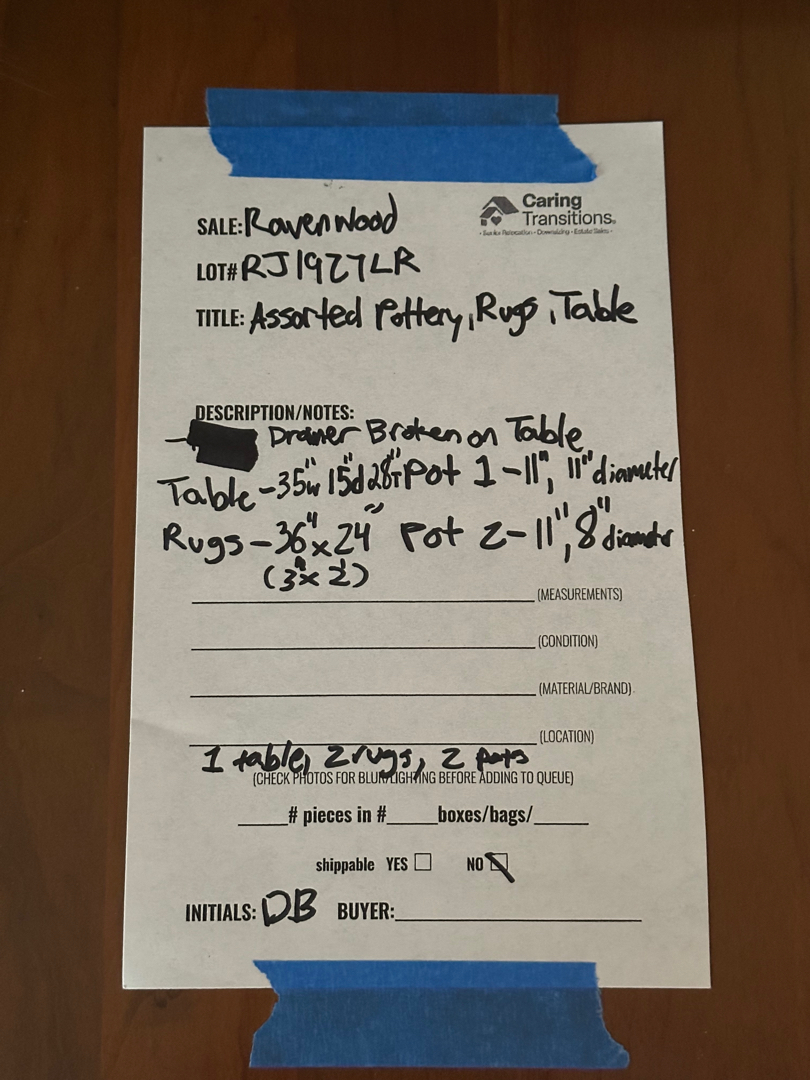 SALE: Ravenwood
Caring
Transitions.
• Senior Relocation • Downsizing • Estate Sales •
LOT# RJ1927LR
TITLE: Assorted Pottery, Rugs, Table
DESCRIPTION/NOTES:
Drawer Broken on Table
Table - 35"w 15"d 28"T Pot 1 - 11", 11" diameter
Rugs - 36" x 24" Pot 2 - 11", 8" diameter
(MEASUREMENTS)
(CONDITION)
(MATERIAL/BRAND)
(LOCATION)
1 table, 2 rugs, 2 pots
(CHECK PHOTOS FOR BLUR/LIGHTING BEFORE ADDING TO QUEUE)
____# pieces in #____boxes/bags/____
shippable YES NO
INITIALS: DB BUYER: